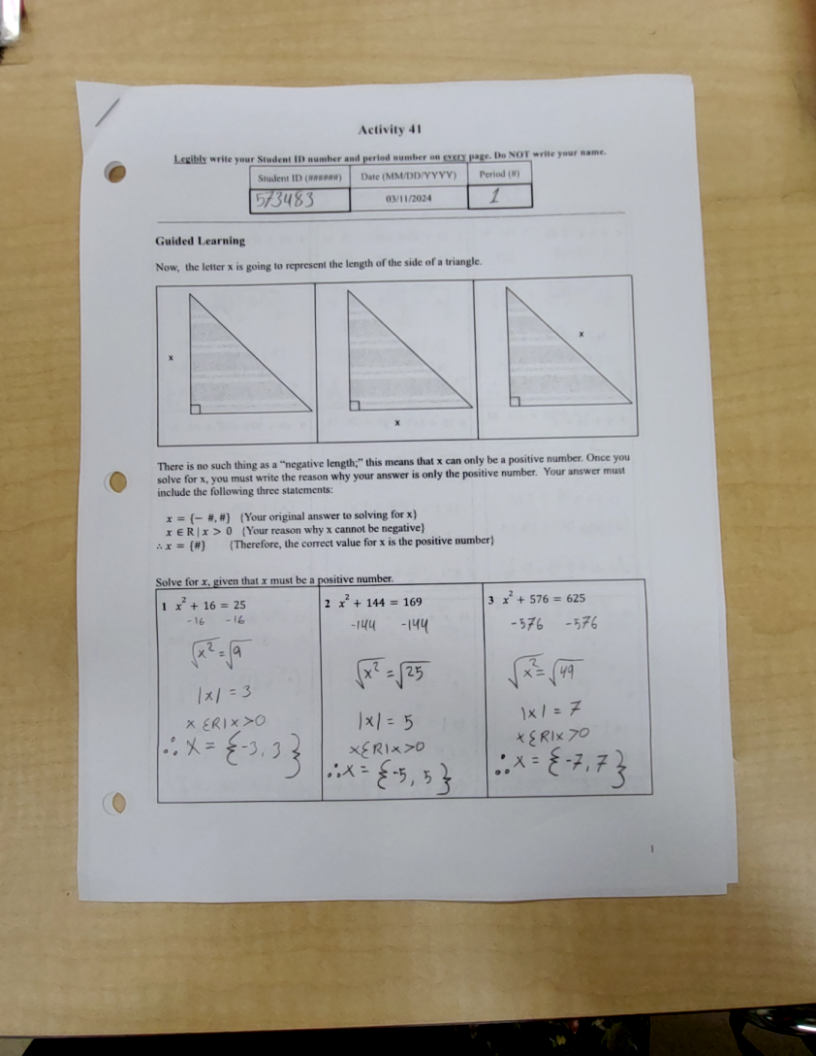 Activity 41
Legibly write your Student ID number and period number on every page. Do NOT write your name.
Student ID (######) Date (MM/DD/YYYY) Period (#)
573483 03/11/2024 1
Guided Learning
Now, the letter x is going to represent the length of the side of a triangle.
x
x
x
There is no such thing as a “negative length;” this means that x can only be a positive number. Once you
solve for x, you must write the reason why your answer is only the positive number. Your answer must
include the following three statements:
x = {− #, #} {Your original answer to solving for x}
x ∈ R | x > 0 {Your reason why x cannot be negative}
∴ x = {#} {Therefore, the correct value for x is the positive number}
Solve for x, given that x must be a positive number.
1 x² + 16 = 25
-16 -16
√x² = √9
|x| = 3
x ξR|x>0
∴ x = {-3, 3}
2 x² + 144 = 169
-144 -144
√x² = √25
|x| = 5
xξR|x>0
∴x = {-5, 5}
3 x² + 576 = 625
-576 -576
√x² = √49
|x| = 7
xξR|x>0
∴x = {-7, 7}
1